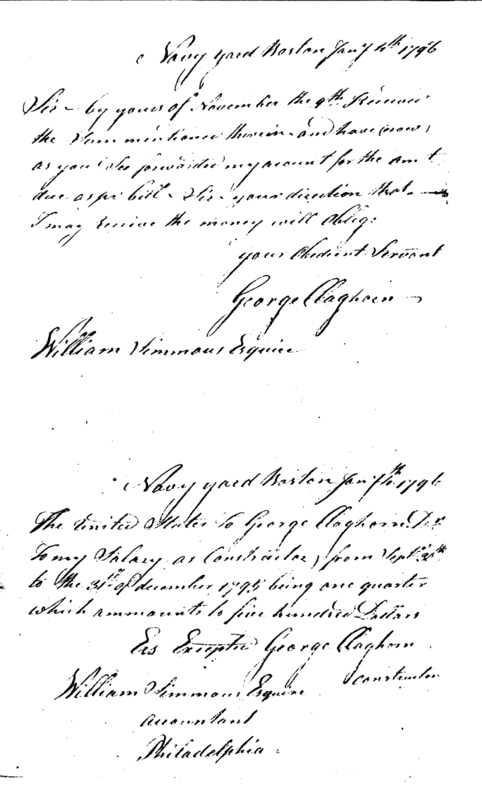 Navy yard Boston Jany 4th 1796
Sir - by yours of November the 9th I Receive
the Sum mentioned therein - and have now,
as you See forwarded my acount for the am t
due as pr bill - Sir - your direction that -
I may receive the money will oblig:
your Obedient Servant
George Claghorn
William Simmons Esquire
Navy yard Boston Jany 4th 1796
The United States To George Claghorn Dr.
To my Salary as Constructor, from Sept. 30th
to the 31st of december 1795 being one quarter
which ammounts to five hundred Dollars
Ers Excepted George Claghorn
constructor
William Simmons Esquire
accountant
Philadelphia.